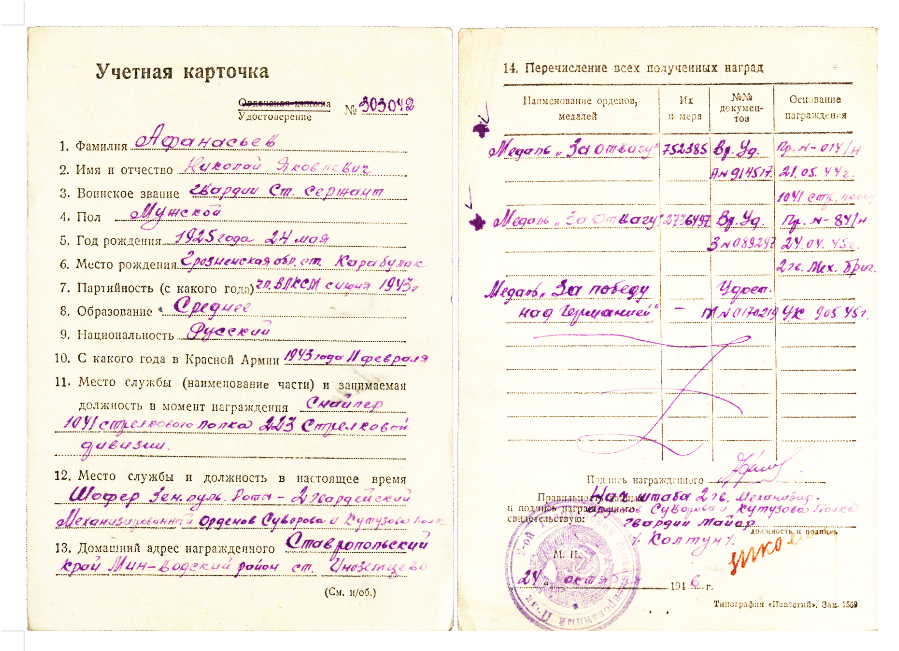 Учетная карточка
Орденская книжка
Удостоверение № 303042
1. Фамилия Афанасьев
2. Имя и отчество Николай Яковлевич
3. Воинское звание гвардии Ст. сержант
4. Пол Мужской
5. Год рождения 1925 года 24 мая
6. Место рождения Грозненская обл. ст. Карабулак
7. Партийность (с какого года) чл. ВЛКСМ с июня 1943 г
8. Образование Среднее
9. Национальность Русский
10. С какого года в Красной Армии 1943 года 11 февраля
11. Место службы (наименование части) и занимаемая
должность в момент награждения Снайпер
1041 стрелкового полка 223 Стрелковой
дивизии.
12. Место службы и должность в настоящее время
Шофер Зен. пуль. Рота - 2 гвардейский
Механизированной Орденов Суворова и Кутузова Полк
13. Домашний адрес награжденного Ставропольский
край Мин-водский район ст. Иноземцево
(См. н/об.)
14. Перечисление всех полученных наград
Наименование орденов, медалей
Их номера
№№ докумен-тов
Основание награждения
Медаль „За отвагу" 752385 Вр. Уд. Пр. N-014/н
А N 914517. 21.05.44 г.
1041 стр. полку
Медаль „За Отвагу" 2776497 Вр. Уд. Пр. N-84/н
З N 089297 24.04.45 г.
2 гв. Мех. Бриг.
Медаль „За победу Удост.
над Германией" — N 0170219 УК 9 05 45 г.
Подпись награжденного
Правильность
и подпись награжденного
свидетельствую:
Нач штаба 2 гв. Механизир.
Суворова и Кутузова Полка
гвардии Майор
должность и подпись
Колтун
М. П.
24 „ октября 1946 г.
Типография «Известий». Зак. 1559